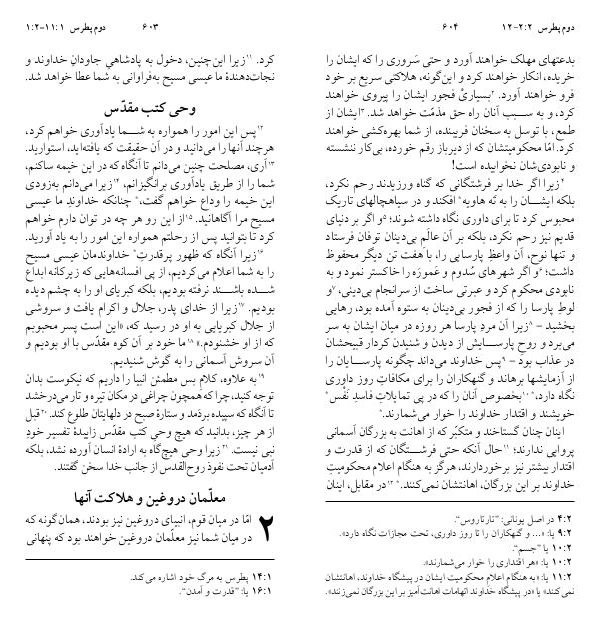 دوم پطرس ۱۱:۱-۱:۲
۶۰۳
کرد. ۱۱زیرا این‌چنین، دخول به پادشاهیِ جاودانِ خداوند و
نجات‌دهندۀ ما عیسی مسیح به‌فراوانی به شما عطا خواهد شد.
وحی کتب مقدّس
۱۲پس این امور را همواره به شما یادآوری خواهم کرد،
هرچند آنها را می‌دانید و در آن حقیقت که یافته‌اید، استوارید.
۱۳آری، مصلحت چنین می‌دانم تا آنگاه که در این خیمه ساکنم،
شما را از طریق یادآوری برانگیزانم، ۱۴زیرا می‌دانم به‌زودی
این خیمه را وداع خواهم گفت،* چنانکه خداوند ما عیسی
مسیح مرا آگاهانید. ۱۵از این رو هر چه در توان دارم خواهم
کرد تا بتوانید پس از رحلتم همواره این امور را به یاد آورید.
۱۶زیرا آنگاه که ظهور پرقدرتِ* خداوندمان عیسی مسیح
را به شما اعلام می‌کردیم، از پی افسانه‌هایی که زیرکانه ابداع
شده باشند نرفته بودیم، بلکه کبریای او را به چشم دیده
بودیم. ۱۷زیرا از خدای پدر، جلال و اکرام یافت و سروشی
از جلال کبریایی به او در رسید که، «این است پسر محبوبم
که از او خشنودم.» ۱۸ما خود بر آن کوه مقدّس با او بودیم و
آن سروش آسمانی را به گوش شنیدیم.
۱۹به علاوه، کلام بس مطمئن انبیا را داریم که نیکوست بدان
توجه کنید، چرا که همچون چراغی در مکان تیره و تار می‌درخشد
تا آنگاه که سپیده بردمَد و ستارۀ صبح در دلهایتان طلوع کند. ۲۰قبل
از هر چیز، بدانید که هیچ وحیِ کتب مقدّس زاییدۀ تفسیر خودِ
نبی نیست. ۲۱زیرا وحی هیچ‌گاه به ارادۀ انسان آورده نشد، بلکه
آدمیان تحت نفوذ روح‌القدس از جانب خدا سخن گفتند.
معلّمان دروغین و هلاکت آنها
۲ امّا در میان قوم، انبیای دروغین نیز بودند، همان‌گونه که
در میان شما نیز معلّمان دروغین خواهند بود که پنهانی
۱۴:۱ پطرس به مرگ خود اشاره می‌کند.
۱۶:۱ یا: "قدرت و آمدن".
دوم پطرس ۲:۲-۱۲
۶۰۴
بدعتهای مهلک خواهند آورد و حتی سَروری را که ایشان را
خریده، انکار خواهند کرد و این‌گونه، هلاکتی سریع بر خود
فرو خواهند آورد. ۲بسیاری فجور ایشان را پیروی خواهند
کرد، و به سبب آنان راه حق مذمّت خواهد شد. ۳ایشان از
طمع، با توسل به سخنان فریبنده، از شما بهره‌کشی خواهند
کرد. امّا محکومیتشان که از دیرباز رقم خورده، بی‌کار ننشسته
و نابودی‌شان نخوابیده است!
۴زیرا اگر خدا بر فرشتگانی که گناه ورزیدند رحم نکرد،
بلکه ایشان را به تَه هاویه* افکند و در سیاهچالهای تاریک
محبوس کرد تا برای داوری نگاه داشته شوند؛ ۵و اگر بر دنیای
قدیم نیز رحم نکرد، بلکه بر آن عالَم بی‌دینان توفان فرستاد
و تنها نوح، آن واعظِ پارسایی را، با هفت تن دیگر محفوظ
داشت؛ ۶و اگر شهرهای سُدوم و غَمورَه را خاکستر نمود و به
نابودی محکوم کرد و عبرتی ساخت از سرانجام بی‌دینی، ۷و
لوطِ پارسا را که از فجورِ بی‌دینان به ستوه آمده بود، رهایی
بخشید - ۸زیرا آن مردِ پارسا هر روزه در میان ایشان به سر
می‌برد و روح پارسایش از دیدن و شنیدن کردار قبیحشان
در عذاب بود - ۹پس خداوند می‌داند چگونه پارسایان را
از آزمایشها برهاند و گنهکاران را برای مکافاتِ روز داوری
نگاه دارد،* ۱۰بخصوص آنان را که در پی تمایلاتِ فاسدِ نَفْس*
خویشند و اقتدار خداوند را خوار می‌شمارند.*
اینان چنان گستاخند و متکبّر که از اهانت به بزرگان آسمانی
پروایی ندارند؛ ۱۱حال آنکه حتی فرشتگان که از قدرت و
اقتدار بیشتر نیز برخوردارند، هرگز به هنگام اعلام محکومیتِ
خداوند بر این بزرگان، اهانتشان نمی‌کنند.* ۱۲در مقابل، اینان
۴:۲ در اصل یونانی: "تارتاروس".
۹:۲ یا: «... و گنهکاران را تا روز داوری، تحت مجازات نگاه دارد».
۱۰:۲ یا "جسم".
۱۰:۲ یا: «هر اقتداری را خوار می‌شمارند».
۱۱:۲ یا: «به هنگام اعلام محکومیت ایشان در پیشگاه خداوند، اهانتشان
نمی‌کنند» یا «در پیشگاه خداوند اتهامات اهانت‌آمیز بر این بزرگان نمی‌زنند».